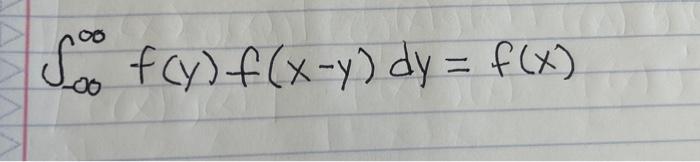 ∫_{-∞}^{∞} f(y) f(x-y) dy = f(x)